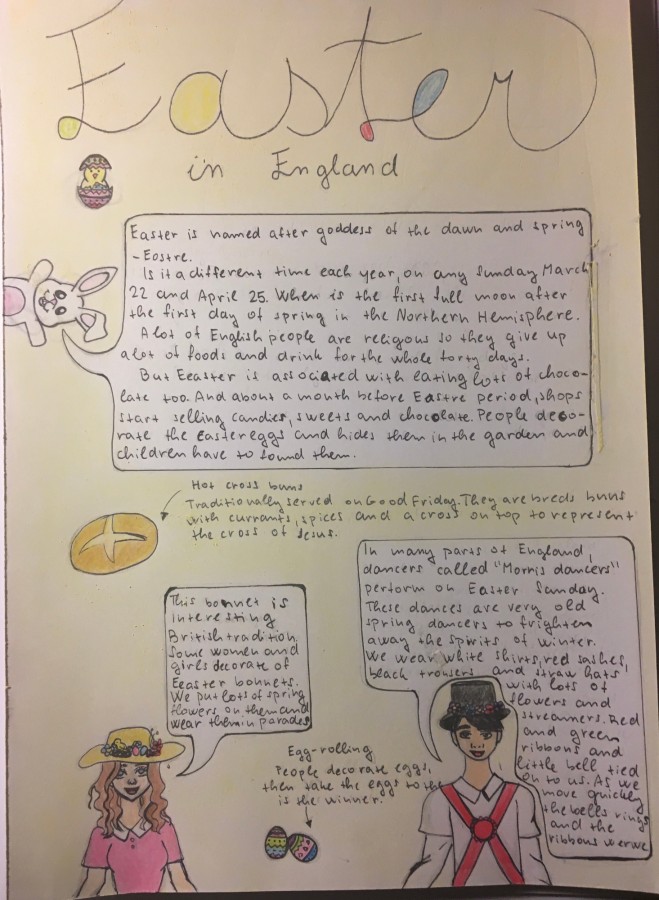 Easter
in England
Easter is named after goddess of the dawn and spring
- Eostre.
Is it a different time each year, on any Sunday March
22 and April 25. When is the first full moon after
the first day of spring in the Northern Hemisphere.
A lot of English people are religious so they give up
a lot of foods and drink for the whole forty days.
But Eeaster is associated with eating lots of choco-
late too. And about a month before Eastre period, shops
start selling candies, sweets and chocolate. People deco-
rate the easter eggs and hides them in the garden and
children have to found them.
Hot cross buns
Traditionally served on Good Friday. They are breds buns
with currants, spices and a cross on top to represent
the cross of Jesus.
This bonnet is
interesting
British tradition.
Some women and
girls decorate of
Eeaster bonnets.
We put lots of spring
flowers on them and
wear them in parades
In many parts of England,
dancers called "Morris dancers"
perform on Easter Sunday.
These dances are very old
spring dancers to frighten
away the spirits of winter.
We wear white shirts, red sashes,
black trousers and straw hats
with lots of
flowers and
streamers. Red
and green
ribbons and
little bell tied
on to us. As we
move quickly
the bells rings
and the
ribbons werwe
Egg-rolling
People decorate eggs,
then take the eggs to the
is the winner.